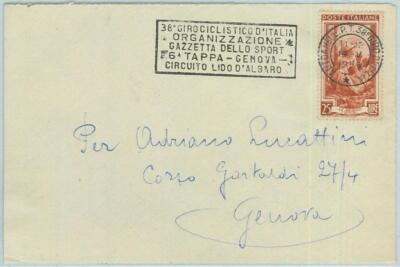 38° GIRO CICLISTICO D'ITALIA
ORGANIZZAZIONE
GAZZETTA DELLO SPORT
6ª TAPPA - GENOVA -
CIRCUITO LIDO D'ALBARO
POSTE ITALIANE
25 LIRE
Per Adriano Lucattini
Corso Garibaldi 27/4
Genova